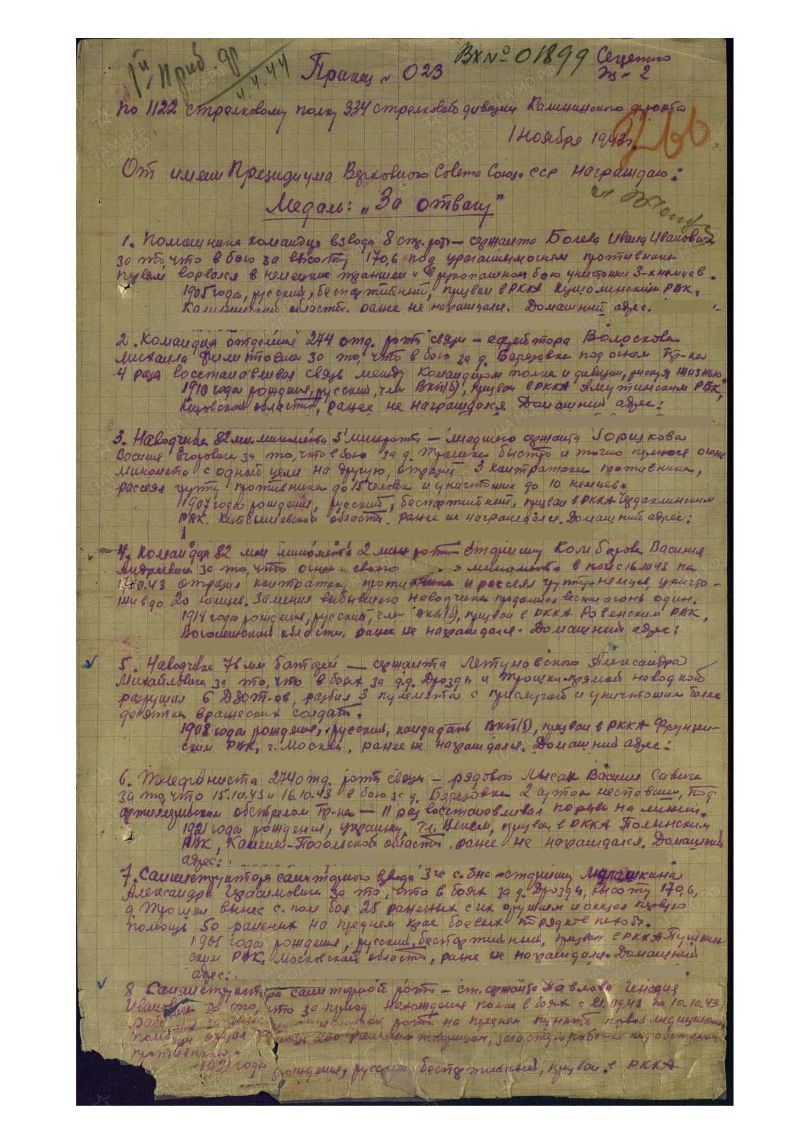 1й Приб. фр
4.4.44
Вх№ 01899
Секретно
Экз № 2
Приказ № 023
по 1122 стрелковому полку 334 стрелковой дивизии Калининского фронта
1 Ноября 1943 г.
266
От имени Президиума Верховного Совета Союза ССР награждаю:
Медаль: „За отвагу"
1. Помощника командира взвода 8 стр. роты – сержанта Ивана Ивановича
за то, что в бою за высоту 170,6 под ураганным огнем противника
первым ворвался в немецкие траншеи и в рукопашном бою уничтожил 3-х немцев.
1905 года, русский, беспартийный, призван в РККА РВК,
Калининской области. ранее не награждался. Домашний адрес.
2. Командира отделения 274 отд. роты связи – ефрейтора Волоскова
Михаила за то, что в бою за д. Березовка под огнем пр-ка
4 раза восстанавливал связь между Командиром полка и дивизии, рискуя жизнью
1910 года рождения, русский, член ВКП(б), призван в РККА Омутнинским РВК,
Кировской области, ранее не награждался Домашний адрес:
3. Наводчика 82 мм миномета 3 минроты – младшего сержанта Горшкова
Василия Егоровича за то, что в бою за д. Трошки быстро и точно перенося огонь
миномета с одной цели на другую, отразил 3 контратаки противника,
рассеял группу противника до 15 человек и уничтожил до 10 немцев.
1907 года рождения, русский, беспартийный, призван в РККА Чердаклинским
РВК. Куйбышевской области. ранее не награждался. Домашний адрес:
4. Командира 82 мм миномета 2 мин роты – старшину Василия
Андреевича за то, что огнем своего миномета в 16.10.43 на
отразил контратаку противника и рассеял группу немцев уничто-
жив до 20 немцев. Заменив выбывшего наводчика продолжал вести огонь один.
1914 года рождения, русский, член ВКП(б), призван в РККА Ровенским РВК,
Воронежской области, ранее не награждался. Домашний адрес:
5. Наводчика 76 мм батареи — сержанта Летуновского Александра
Михайловича за то, что в боях за д.д. Дрозды и Трошки прямой наводкой
разрушил 6 ДЗОТ-ов, разбил 3 пулемета с прислугой и уничтожил более
десятка вражеских солдат.
1908 года рождения, русский, кандидат ВКП(б), призван в РККА Фрунзен-
ским РВК, г. Москвы, ранее не награждался. Домашний адрес:
6. Телефониста 274 отд. роты связи – рядового Лысак Василия Савича
за то, что 15.10.43 и 16.10.43 в бою за д. Березовка под
артиллерийским обстрелом пр-ка — 11 раз восстанавливал порывы на линии.
1921 года рождения, украинец, чл. ВЛКСМ, призван в РККА
РВК, Каменец-Подольской области, ранее не награждался, Домашний
адрес:
7. Санинструктора санитарного взвода 3го с.б-на – старшину
Александра Герасимовича за то, что в боях за д. Дрозды, высоту 170,6,
д. Трошки вынес с поля боя 25 раненых с их оружием и оказал первую
помощь 50 раненых на переднем крае боевых порядков пехоты.
1901 года рождения, русский, беспартийный, призван в РККА Пушкин-
ским РВК, Московской области, ранее не награждался. Домашний
адрес:
8. Санинструктора санитарной роты – ст. сержанта Павлова Генадия
Ивановича за то, что за период нахождения полка в боях с по 10.10.43
роты на переднем пункте первой медицинской
помощи оказал раненым товарищам, зачастую работая под обстрелом
противника.
1921 года рождения, русский, беспартийный, призван в РККА